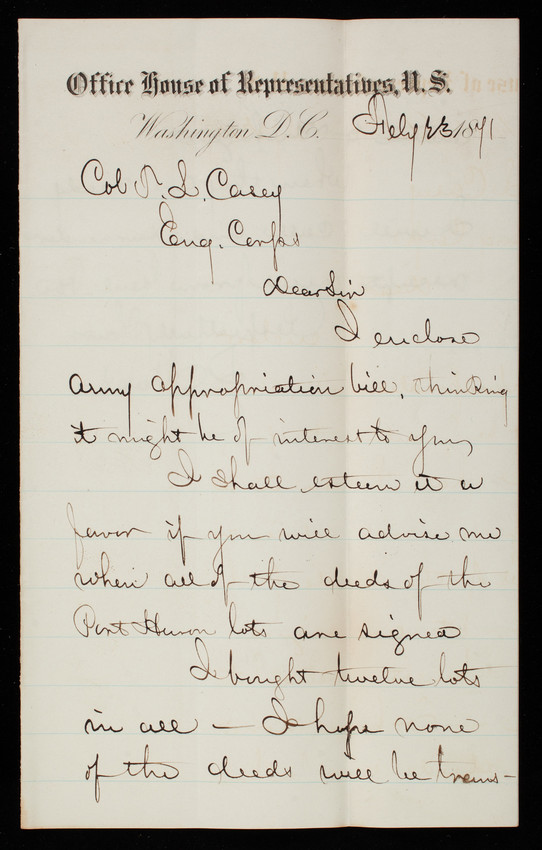 Office House of Representatives, U.S.
Washington D.C. Feby 23 1871
Col T. L. Casey
Eng. Corps
Dear Sir
I enclose
army appropriation bill, thinking
it might be of interest to you,
I shall esteem it a
favor if you will advise me
when all of the deeds of the
Port Huron lots are signed
I bought twelve lots
in all — I hope none
of the deeds will be trans-